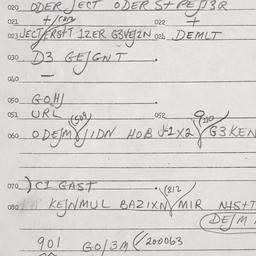 020 ODER JECT ODER S+ PEJ3Q
021 022 +
023 JECT 1ZER G3VEJ2N 024 DEMLT
030 D3 GEJGNT
040 —
050 GOH
051 URL (509) 052 210
060 ODEJM JIDN HOB J1X2 G3KEN
070 ) CI GAST (812
080 KEJNMUL BAZIXN MIR NHS+T
(DEJM
901 GOJ3M (/200063